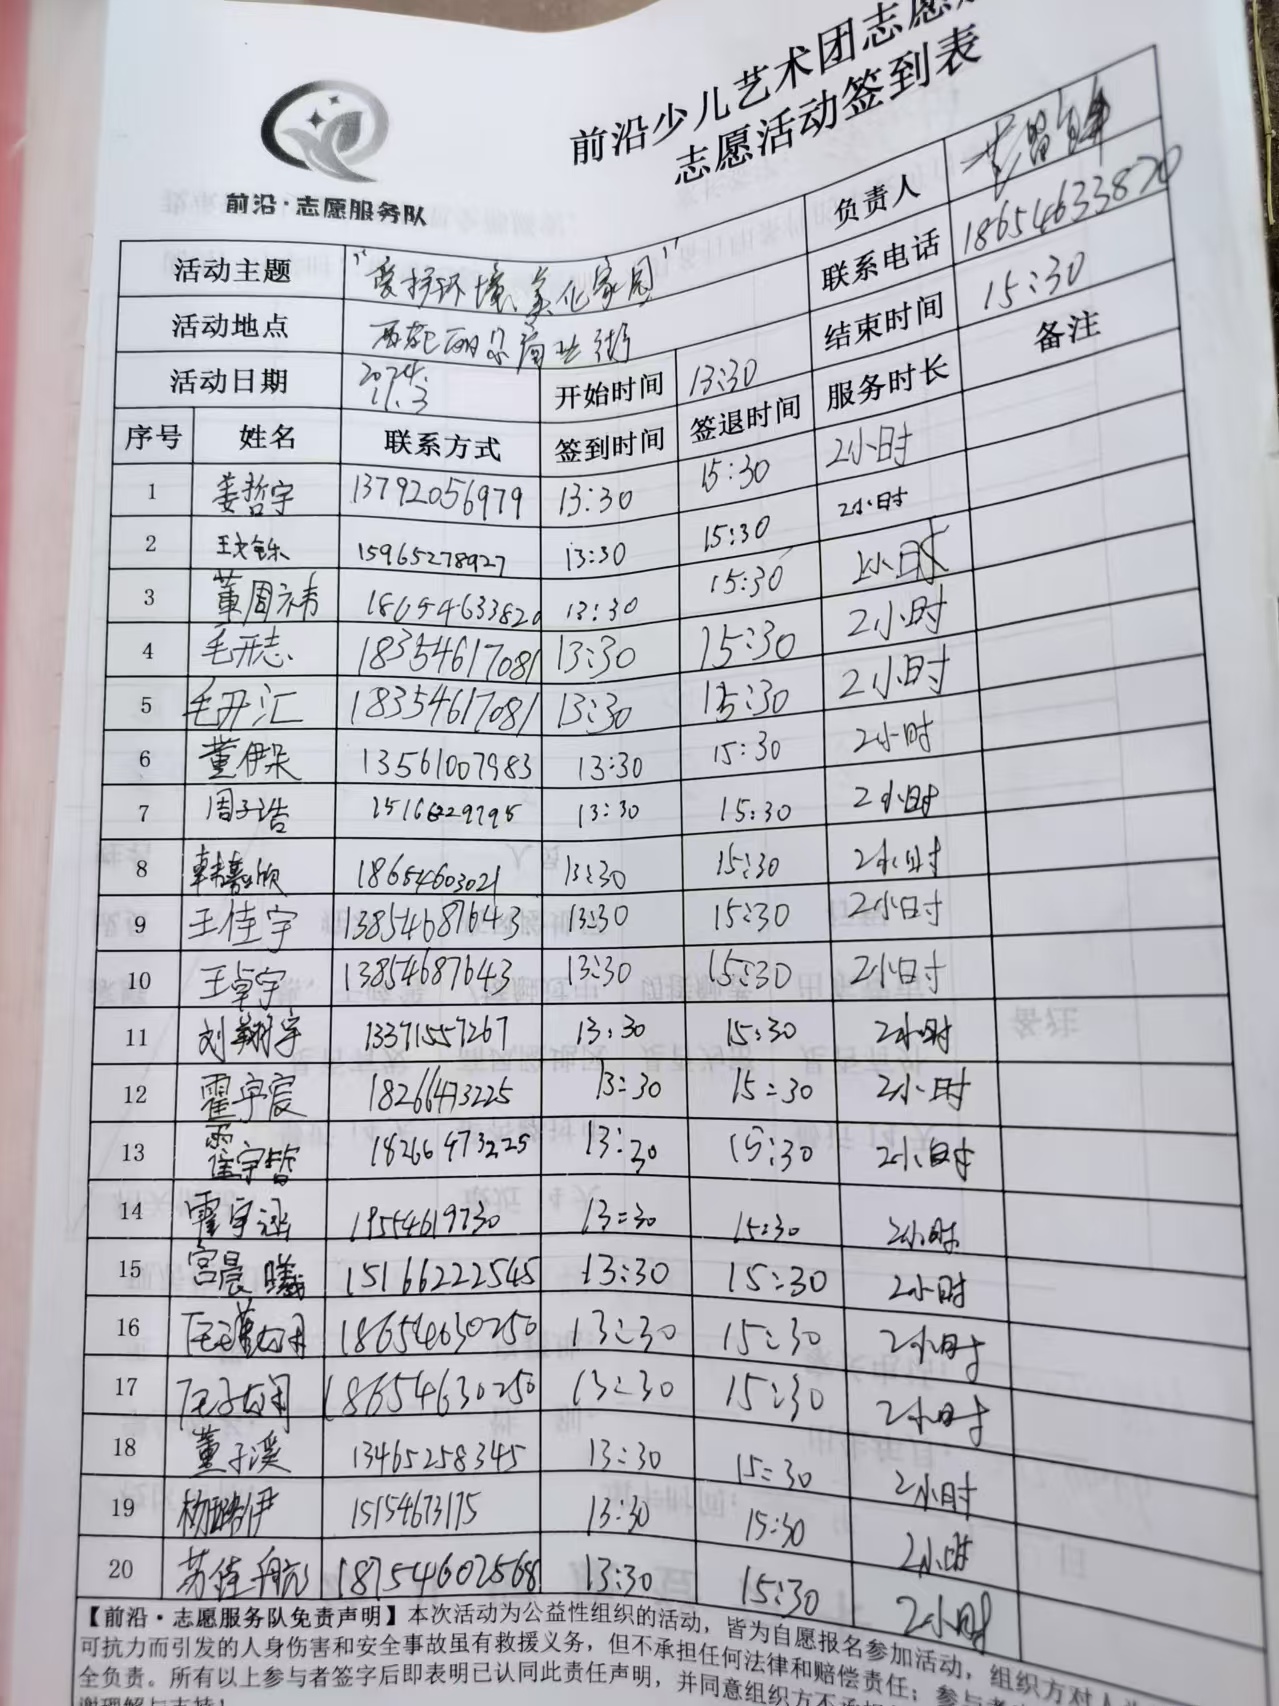 前沿少儿艺术团志愿
志愿活动签到表
前沿·志愿服务队
活动主题 "爱护环境、美化家园" 负责人
活动地点 商业街 联系电话 18654633820
活动日期 2024. 11.3 开始时间 13:30 结束时间 15:30
序号 姓名 联系方式 签到时间 签退时间 服务时长 备注
1 姜哲宇 13792056979 13:30 15:30 2小时
2 15965278927 13:30 15:30 2小时
3 董周祎 18654633820 13:30 15:30 2小时
4 毛开志 18354617081 13:30 15:30 2小时
5 毛开汇 18354617081 13:30 15:30 2小时
6 董伊朵 13561007983 13:30 15:30 2小时
7 周子浩 13:30 15:30 2小时
8 18654603021 13:30 15:30 2小时
9 王佳宇 13854687643 13:30 15:30 2小时
10 王卓宇 13854687643 13:30 15:30 2小时
11 刘翔宇 13371557267 13:30 15:30 2小时
12 霍宇宸 18266473225 13:30 15:30 2小时
13 霍宇皙 18266473225 13:30 15:30 2小时
14 霍宇涵 19554619730 13:30 15:30 2小时
15 宫晨曦 15166222545 13:30 15:30 2小时
16 18654630250 13:30 15:30 2小时
17 18654630250 13:30 15:30 2小时
18 董子溪 13465258345 13:30 15:30 2小时
19 15154673175 13:30 15:30 2小时
20 苏佳航 18754602568 13:30 15:30 2小时
【前沿·志愿服务队免责声明】本次活动为公益性组织的活动，皆为自愿报名参加活动，组织方对
可抗力而引发的人身伤害和安全事故虽有救援义务，但不承担任何法律和赔偿责任；参与者
全负责。所有以上参与者签字后即表明已认同此责任声明，并同意组织方不承担
谢理解与支持！